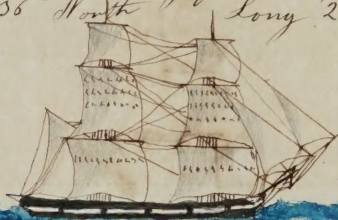 36 North Long 2